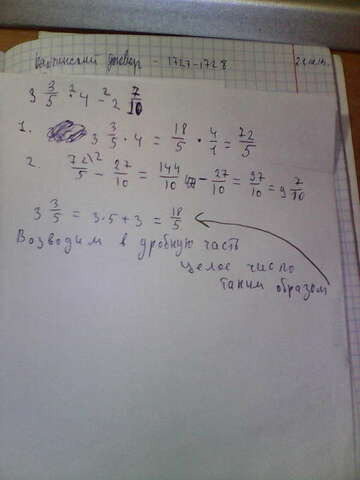 договор - 1727-1728
3 3/5 · 4 - 2 7/10
1. 3 3/5 · 4 = 18/5 · 4/1 = 72/5
2. 72\2/5 - 27/10 = 144/10 - 27/10 = 97/10 = 9 7/10
3 3/5 = 3·5+3 = 18/5
Возводим в дробную часть
целое число
таким образом